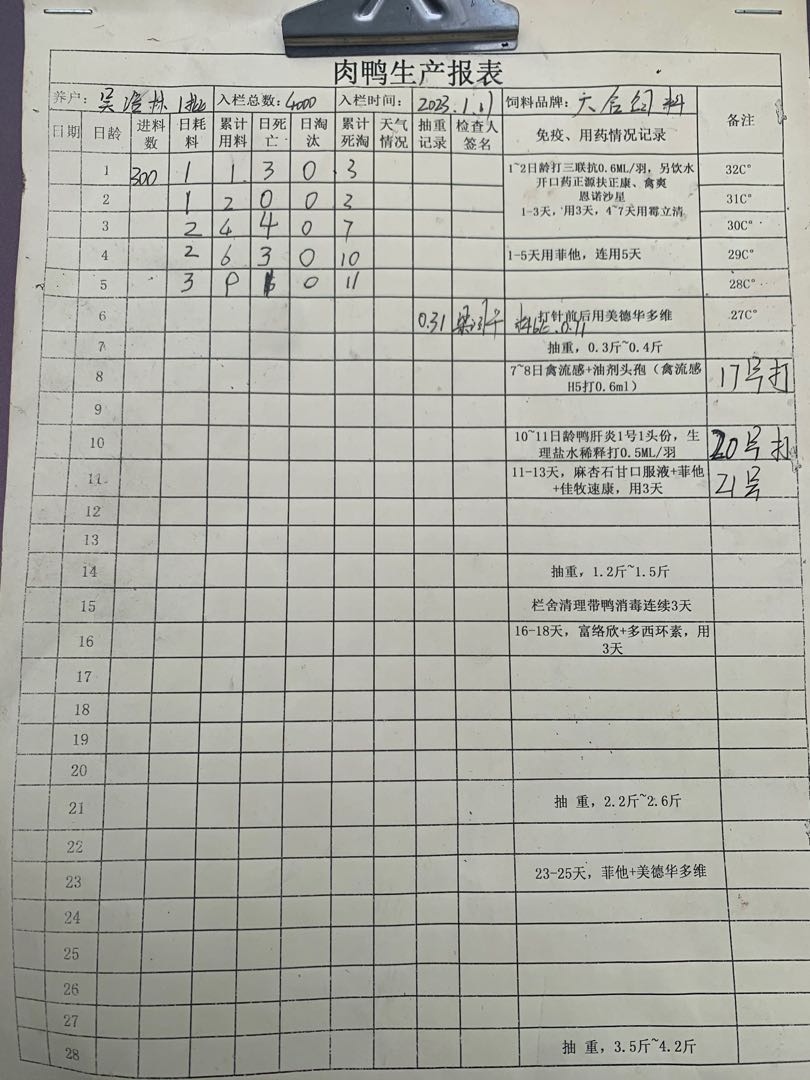 肉鸭生产报表
养户: 吴 林 1批 入栏总数: 4000 入栏时间: 2023.1.11 饲料品牌: 六合饲料 备注
日期 日龄 进料数 日耗料 累计用料 日死亡 日淘汰 累计死淘 天气情况 抽重记录 检查人签名 免疫、用药情况记录
1 300 1 1 3 0 3 1~2日龄打三联抗0.6ML/羽，另饮水 32C°
开口药正源扶正康、禽爽
2 1 2 0 0 3 恩诺沙星 31C°
1-3天，用3天，4~7天用霉立清
3 2 4 4 0 7 30C°
4 2 6 3 0 10 1-5天用菲他，连用5天 29C°
5 3 9 1 0 11 28C°
6 0.31 打针前后用美德华多维 27C°
7 抽重，0.3斤~0.4斤
8 7~8日禽流感+油剂头孢（禽流感 17号打
H5打0.6ml）
9
10 10~11日龄鸭肝炎1号1头份，生 20号打
理盐水稀释打0.5ML/羽
11 11-13天，麻杏石甘口服液+菲他 21号
+佳牧速康，用3天
12
13
14 抽重，1.2斤~1.5斤
15 栏舍清理带鸭消毒连续3天
16 16-18天，富络欣+多西环素，用
3天
17
18
19
20
21 抽 重，2.2斤~2.6斤
22
23 23-25天，菲他+美德华多维
24
25
26
27
28 抽 重，3.5斤~4.2斤